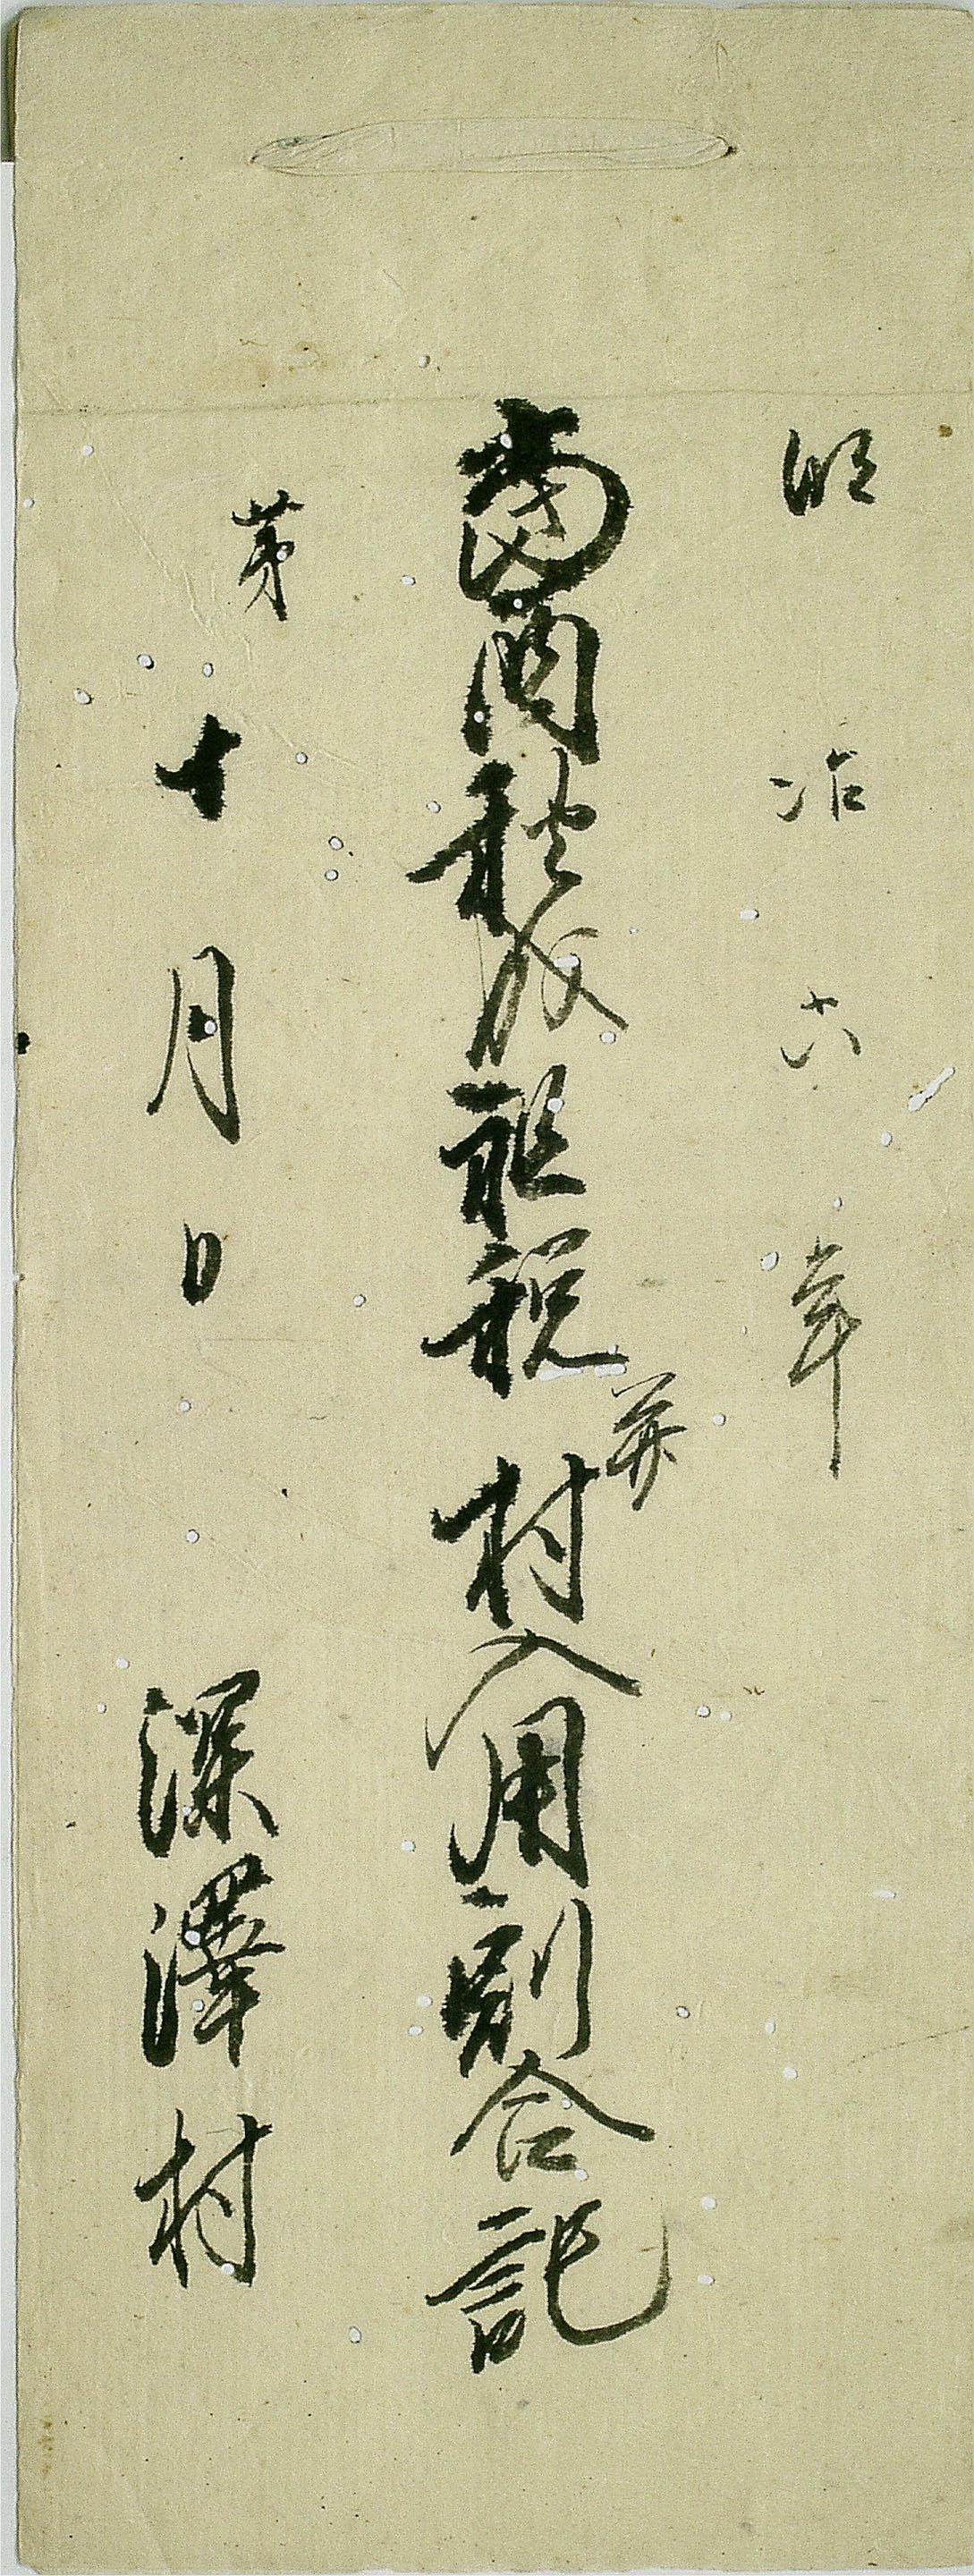 明治六年
當酉秋成租税并村入用割合記
第十月日　深澤村